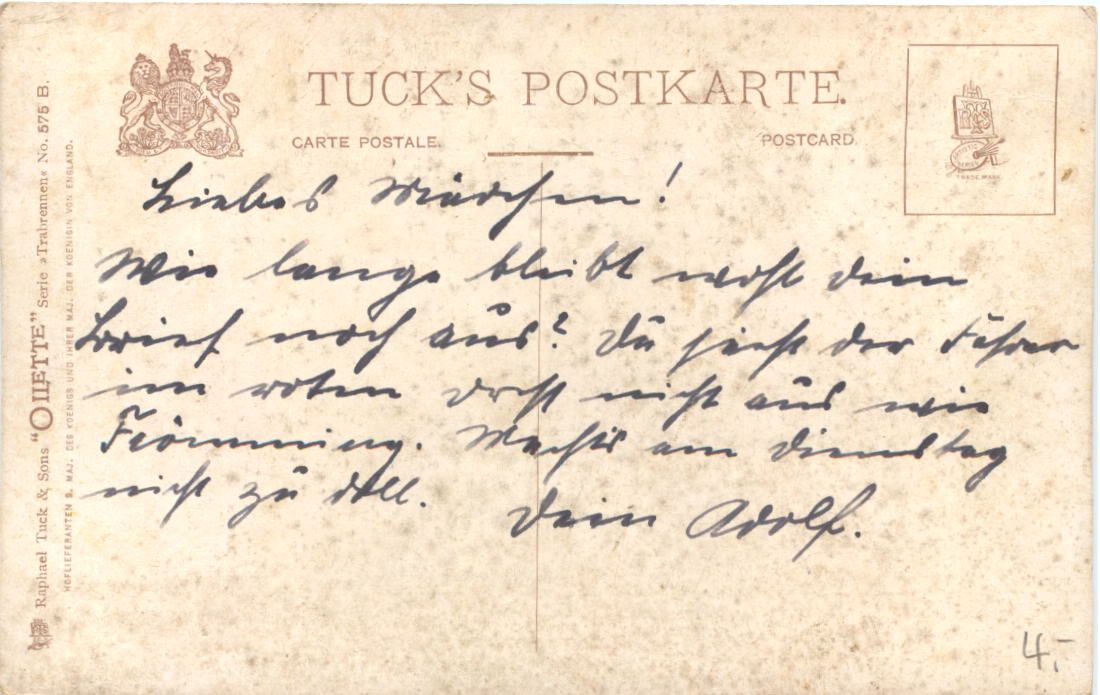 TUCK'S POSTKARTE.
CARTE POSTALE.
POSTCARD.
TRADE MARK
Raphael Tuck & Sons "OILETTE" Serie »Trabrennen« No. 575 B.
HOFLIEFERANTEN S. MAJ. DES KOENIGS UND IHRER MAJ. DER KOENIGIN VON ENGLAND.
Liebes Mädchen!
Wie lange bleibt wohl dein
Brief noch aus? Du siehst der Fahrer
im roten nicht aus wie
Flömming. Macht's am Dienstag
nicht zu doll.
Dein Adolf.
4.-